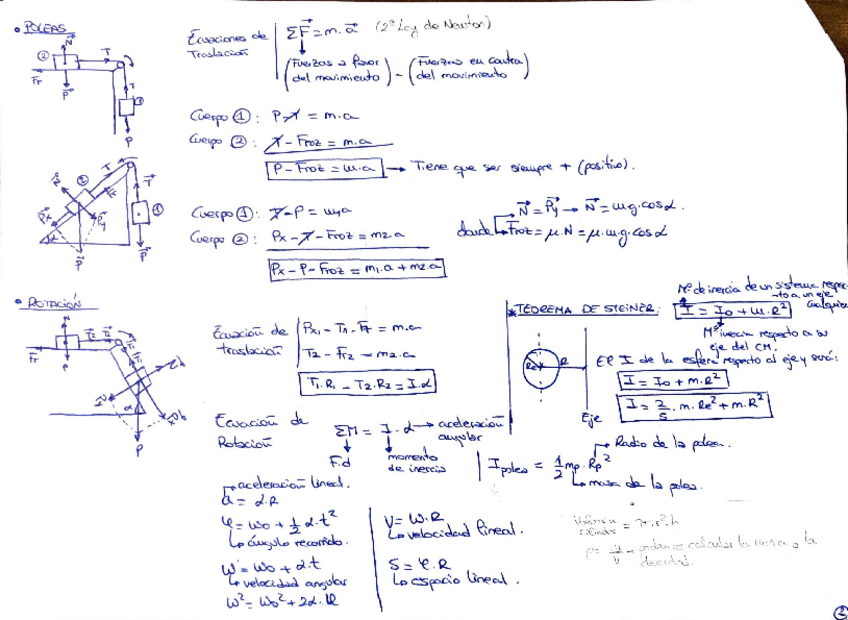 • POLEAS
Ecuaciones de Traslación
ΣF⃗ = m. a⃗ (2ª Ley de Newton)
(Fuerzas a favor del movimiento) - (Fuerzas en contra del movimiento)
Cuerpo ①: P-T = m.a
Cuerpo ②: T-Froz = m.a
P-Froz = m.a → Tiene que ser siempre + (positivo).
Cuerpo ①: T-P = m1a
Cuerpo ②: Px-T-Froz = m2.a
Px-P-Froz = m1.a+m2.a
donde N⃗ = P⃗y → N⃗ = mg.cosα.
Froz = μ.N = μ.m.g.cosα
• ROTACIÓN
Ecuación de traslación
Px1 - T1 - F = m.a
T2 - Fr2 - m2.a
T1.R1 - T2.R2 = I.α
Ecuación de Rotación
ΣM = I.α → aceleración angular
F.d
momento de inercia
aceleración lineal.
a = α.R
φ = ω0 + 1/2 α.t²
ángulo recorrido.
ω = ω0 + α.t
velocidad angular
ω² = ω0² + 2α.φ
V = ω.R
velocidad lineal.
S = φ.R
espacio lineal.
* TEOREMA DE STEINER:
Mº de inercia de un sistema respecto a un eje cualquiera
I = I0 + m.R²
Mº inercia respecto a su eje del CM.
Re R
Eje
El I de la esfera respecto al eje y será:
I = I0 + m.R²
I = 2/5 . m.Re² + m.R²
I polea = 1/2 mp.Rp²
Radio de la polea.
masa de la polea.
= π.r².h
②